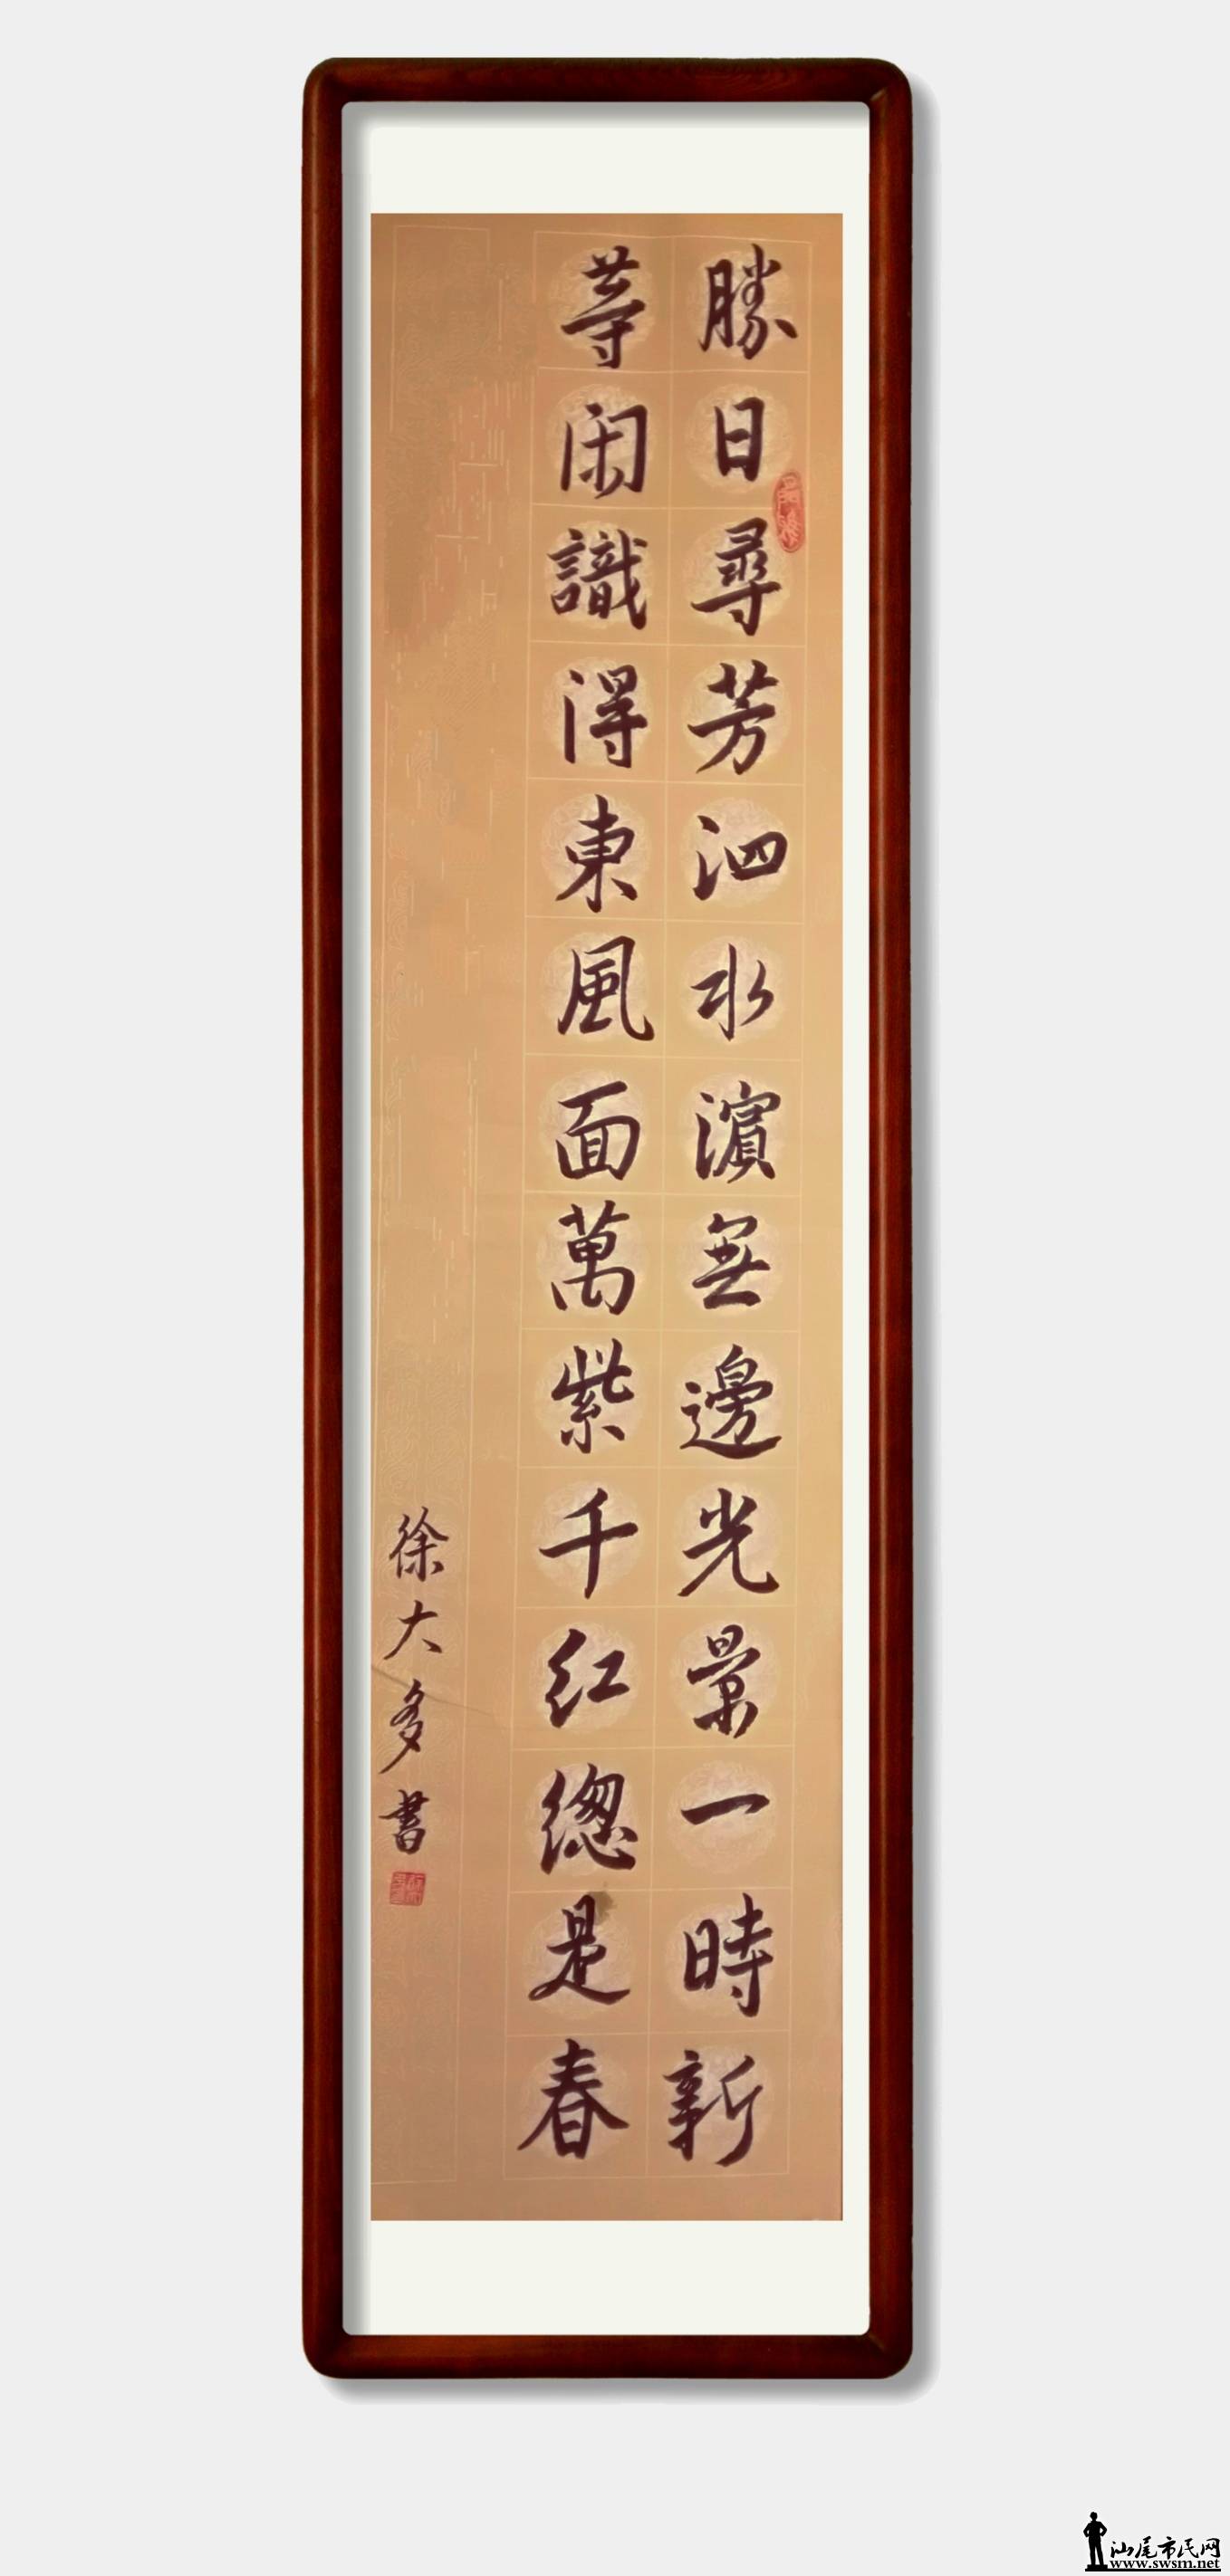 勝日尋芳泗水濱無邊光景一時新
等閑識得東風面萬紫千红總是春
徐大多書
汕尾市民网
www.swsm.net